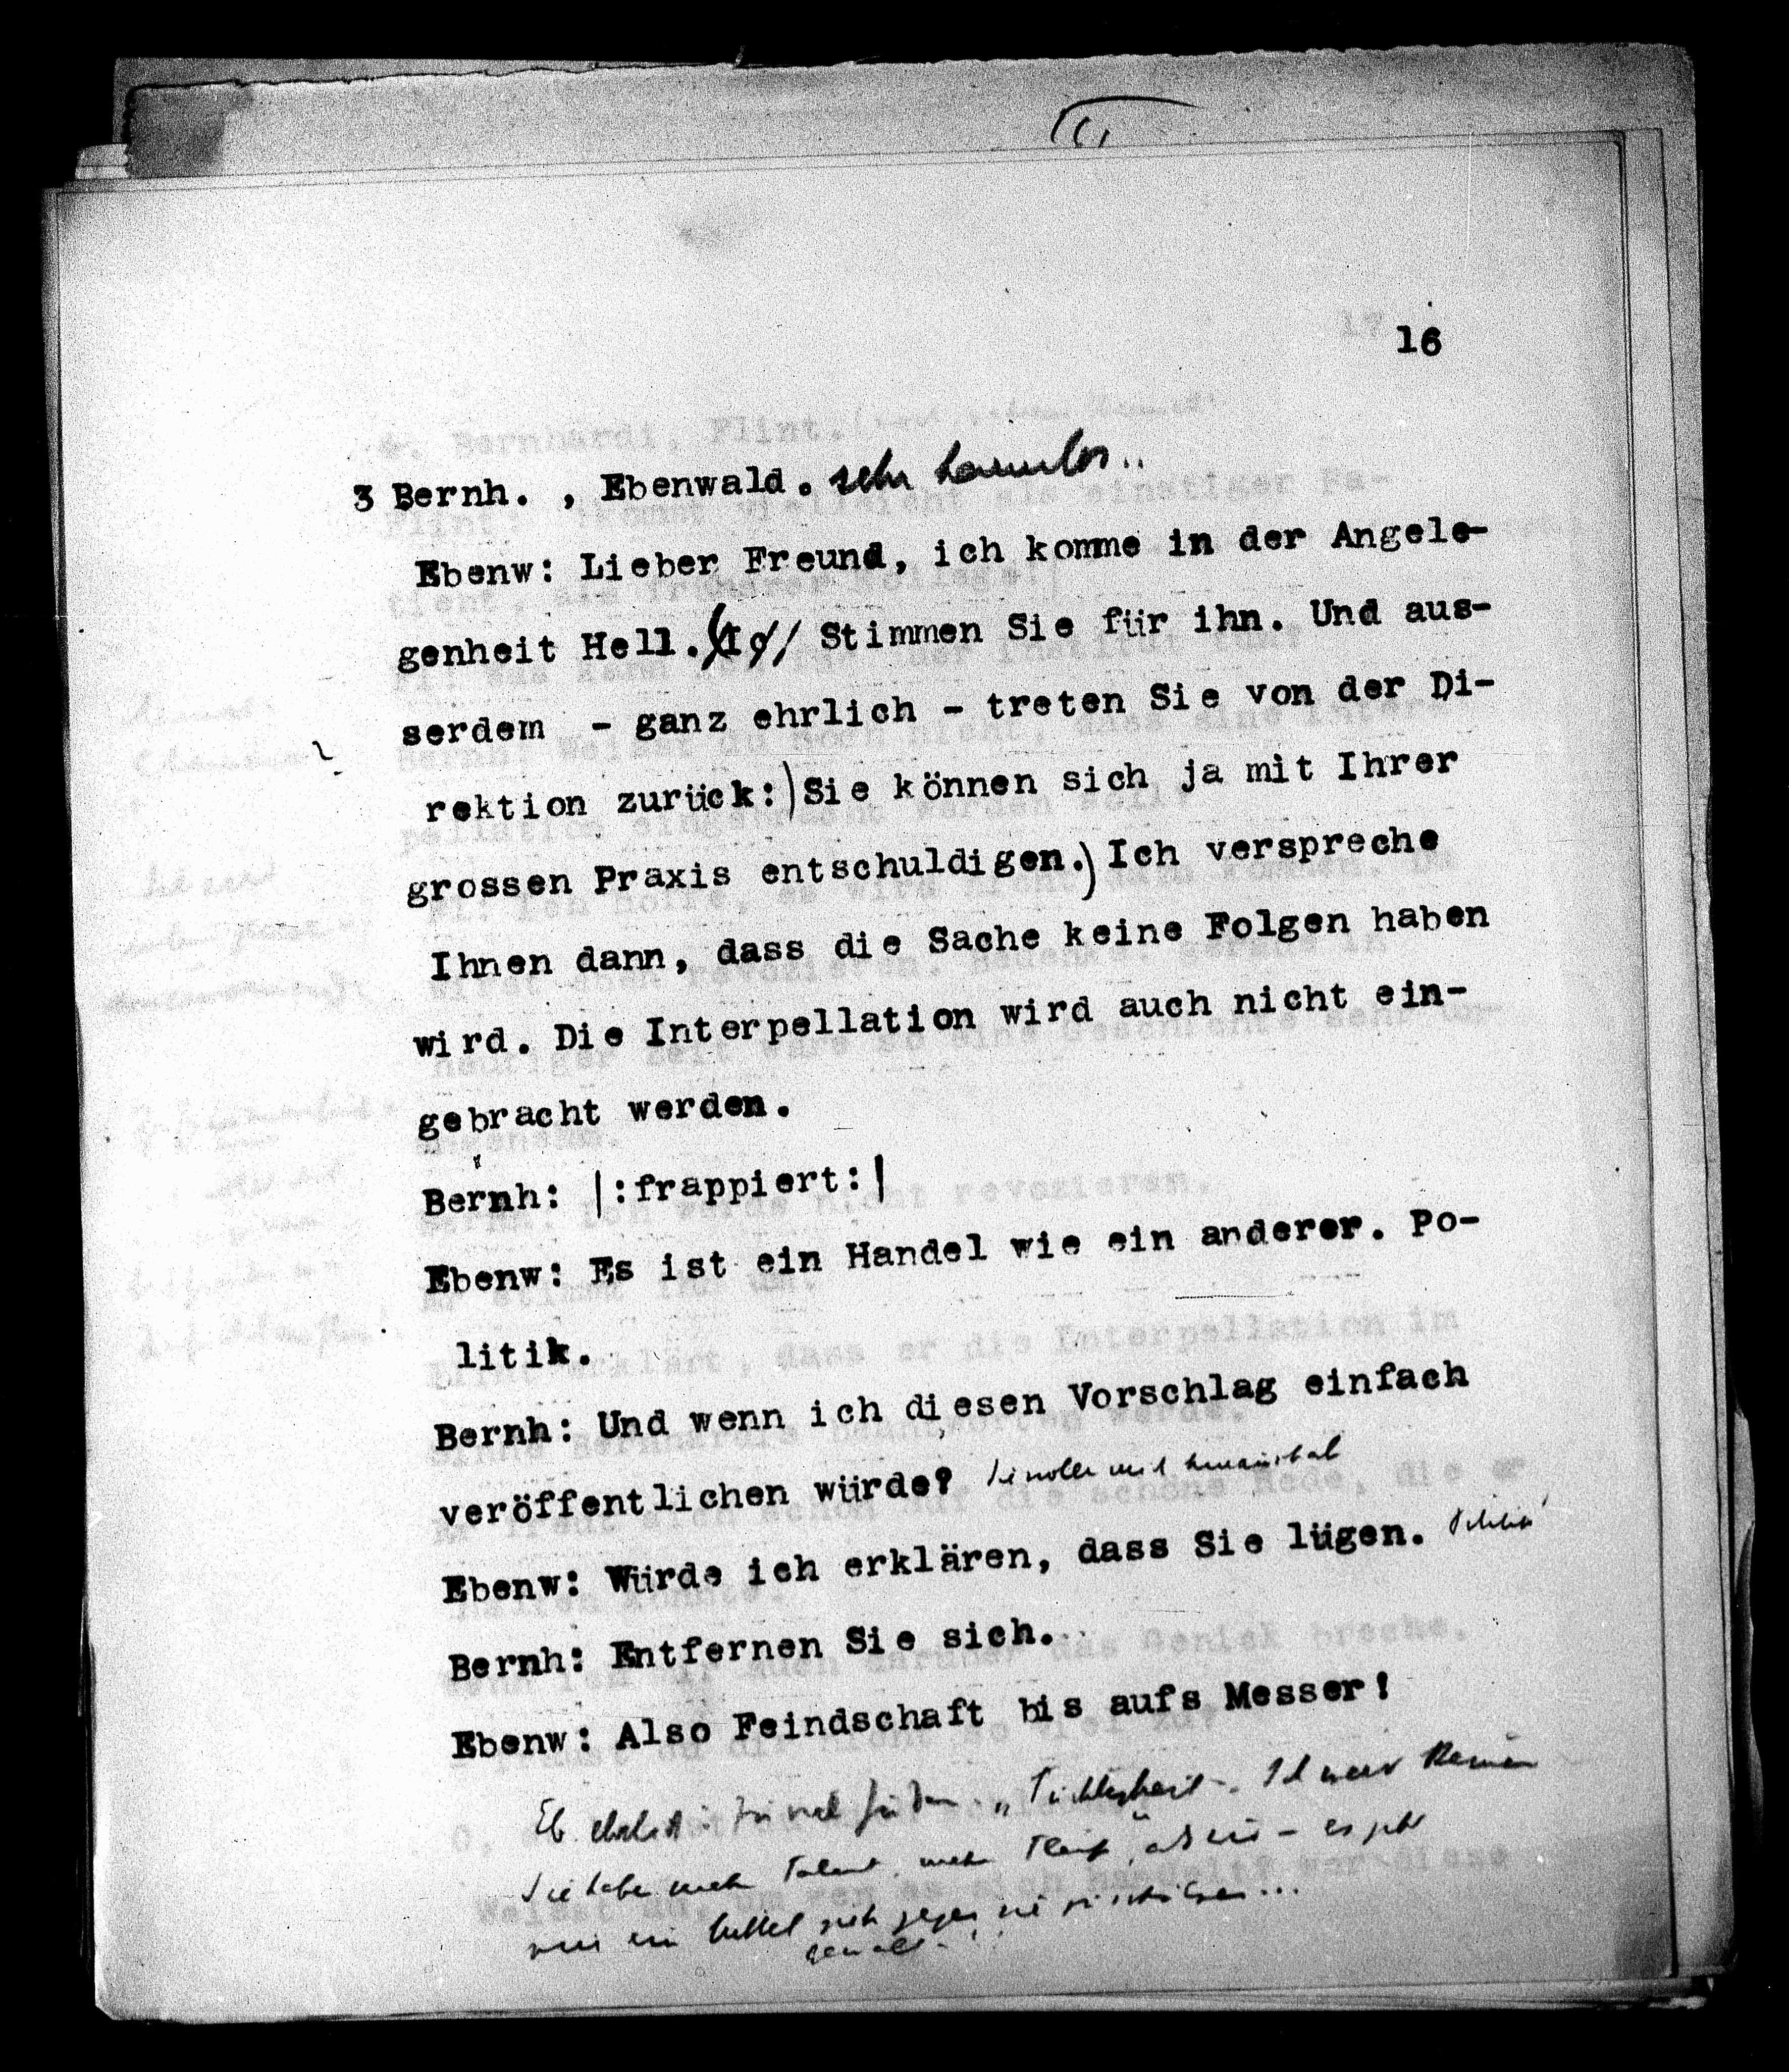 16
3 Bernh. , Ebenwald. sehr harmlos..
Ebenw: Lieber Freund, ich komme in der Angele-
genheit Hell. Stimmen Sie für ihn. Und aus-
serdem - ganz ehrlich - treten Sie von der Di-
rektion zurück:) Sie können sich ja mit Ihrer
grossen Praxis entschuldigen.) Ich verspreche
Ihnen dann, dass die Sache keine Folgen haben
wird. Die Interpellation wird auch nicht ein-
gebracht werden.
Bernh: |:frappiert:|
Ebenw: Es ist ein Handel wie ein anderer. Po-
litik.
Bernh: Und wenn ich diesen Vorschlag einfach
veröffentlichen würde?
Ebenw: Würde ich erklären, dass Sie lügen. Politik
Bernh: Entfernen Sie sich.
Ebenw: Also Feindschaft bis aufs Messer!
Eb. ehrlich: „Tüchtigkeit.
Sie haben mehr Talent, mehr Fleiss, als wir – es gibt
nur ein Mittel sich gegen sie zu schützen...
Gewalt.